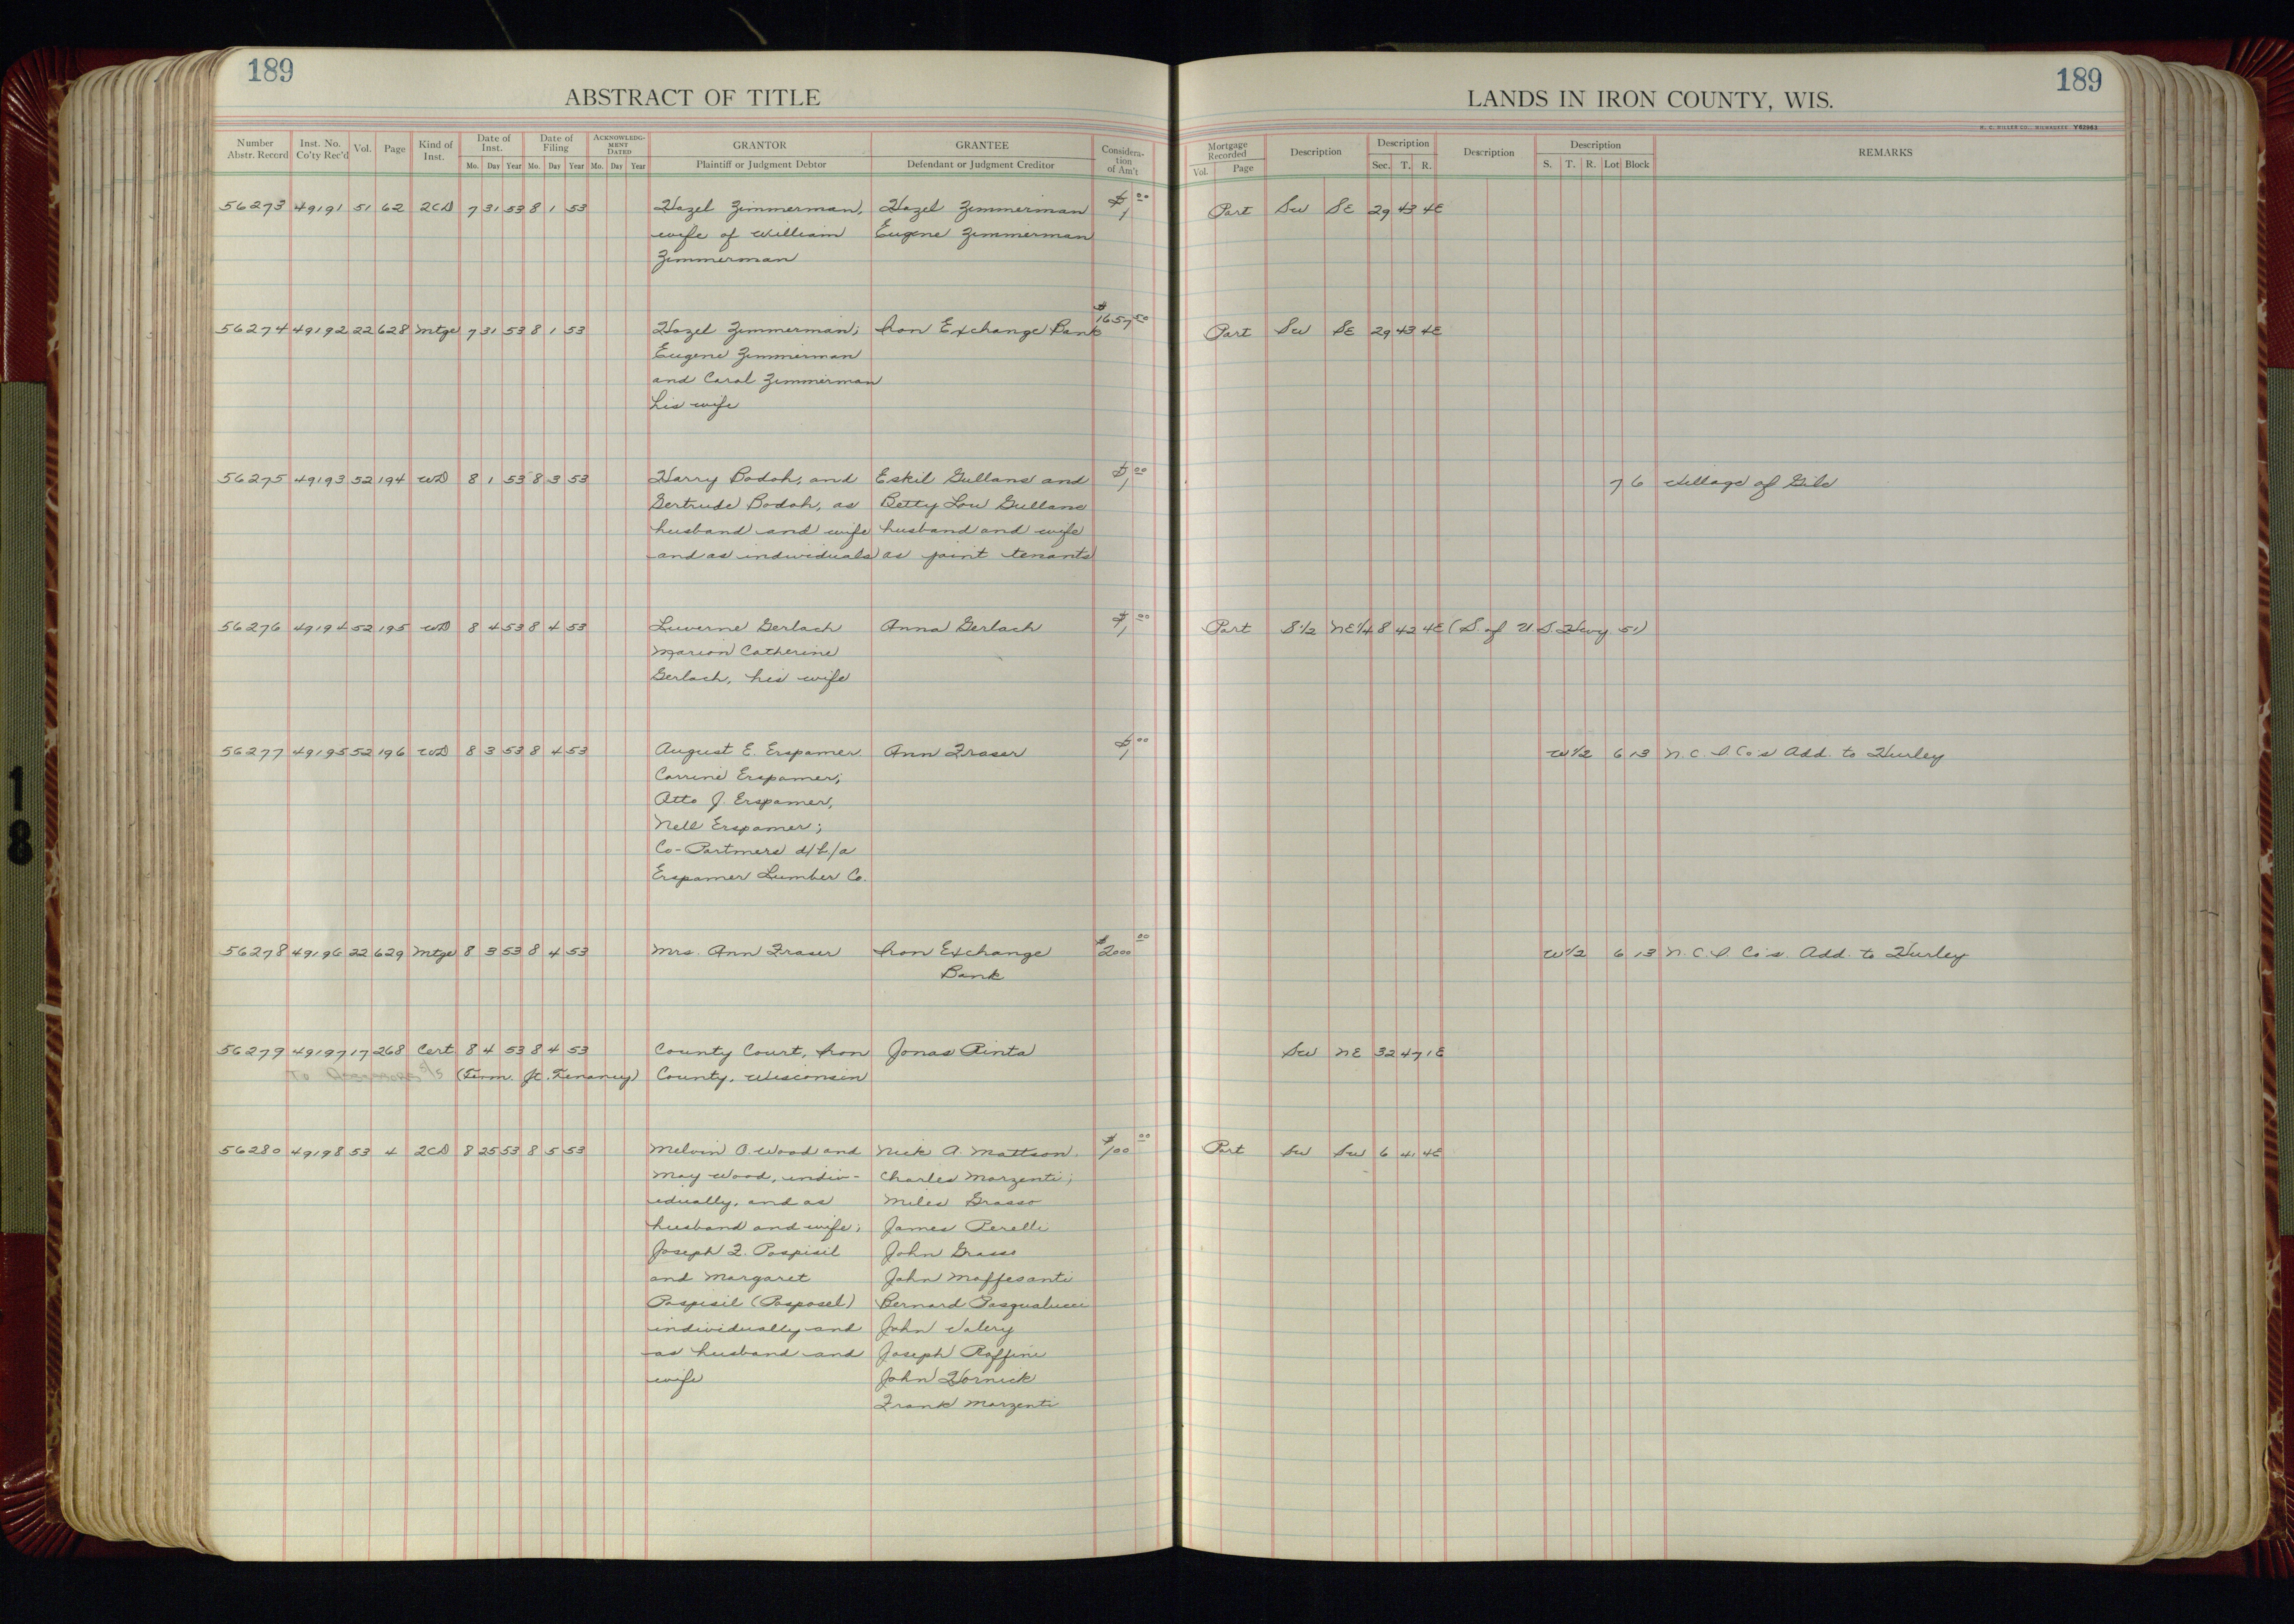 189
ABSTRACT OF TITLE
Number Abstr. Record Inst. No. Co'ty Rec'd Vol. Page Kind of Inst. Date of Inst. Date of Filing ACKNOWLEDGMENT DATED GRANTOR GRANTEE Consideration of Am't
Mo. Day Year Mo. Day Year Mo. Day Year Plaintiff or Judgment Debtor Defendant or Judgment Creditor
56273 49191 51 62 2CD 7 31 53 8 1 53 Hazel Zimmerman, Hazel Zimmerman $1 00
wife of William Eugene Zimmerman
Zimmerman
56274 49192 22 628 Mtge 7 31 53 8 1 53 Hazel Zimmerman; Iron Exchange Bank $1657 50
Eugene Zimmerman
and Carol Zimmerman
his wife
56275 49193 52 194 WD 8 1 53 8 3 53 Harry Bodoh, and Eskil Gulland and $1 00
Gertrude Bodoh, as Betty Lou Gulland
husband and wife husband and wife
and as individuals as joint tenants
56276 49194 52 195 WD 8 4 53 8 4 53 Luverne Gerlach Anna Gerlach $1 00
Marion Catherine
Gerlach, his wife
56277 49195 52 196 WD 8 3 53 8 4 53 August E. Erspamer Ann Fraser $1 00
Corrine Erspamer;
Atto J. Erspamer,
Nell Erspamer;
Co-Partners d/b/a
Erspamer Lumber Co.
56278 49196 22 629 Mtge 8 3 53 8 4 53 Mrs. Ann Fraser Iron Exchange $2000 00
Bank
56279 49197 17 268 Cert 8 4 53 8 4 53 County Court, Iron Jonas Rinta
To (Term. Jt. Tenancy) County, Wisconsin
56280 49198 53 4 2CD 8 25 53 8 5 53 Melvin O. Wood and Nick A. Mattson $100 00
May Wood, indiv- Charles Marzenti;
idually, and as Miles Grasso
husband and wife; James Perelli
Joseph F. Pospisil John Grasso
and Margaret John Maffesanti
Pospisil (Posposel) Bernard Pasqualucci
individually and John Valery
as husband and Joseph Roffine
wife John Hornick
Frank Marzenti
189
LANDS IN IRON COUNTY, WIS.
H. C. MILLER CO., MILWAUKEE Y62963
Mortgage Recorded Description Description Description Description REMARKS
Vol. Page Sec. T. R. S. T. R. Lot Block
Part SW SE 29 43 4E
Part SW SE 29 43 4E
7 6 Village of Gile
Part S1/2 NE1/4 8 42 4E (S. of U.S. Hwy 51)
W1/2 6 13 N.C.I. Co's Add. to Hurley
W1/2 6 13 N.C.I. Co's. Add. to Hurley
SW NE 32 47 1E
Part SW SW 6 41 4E
18